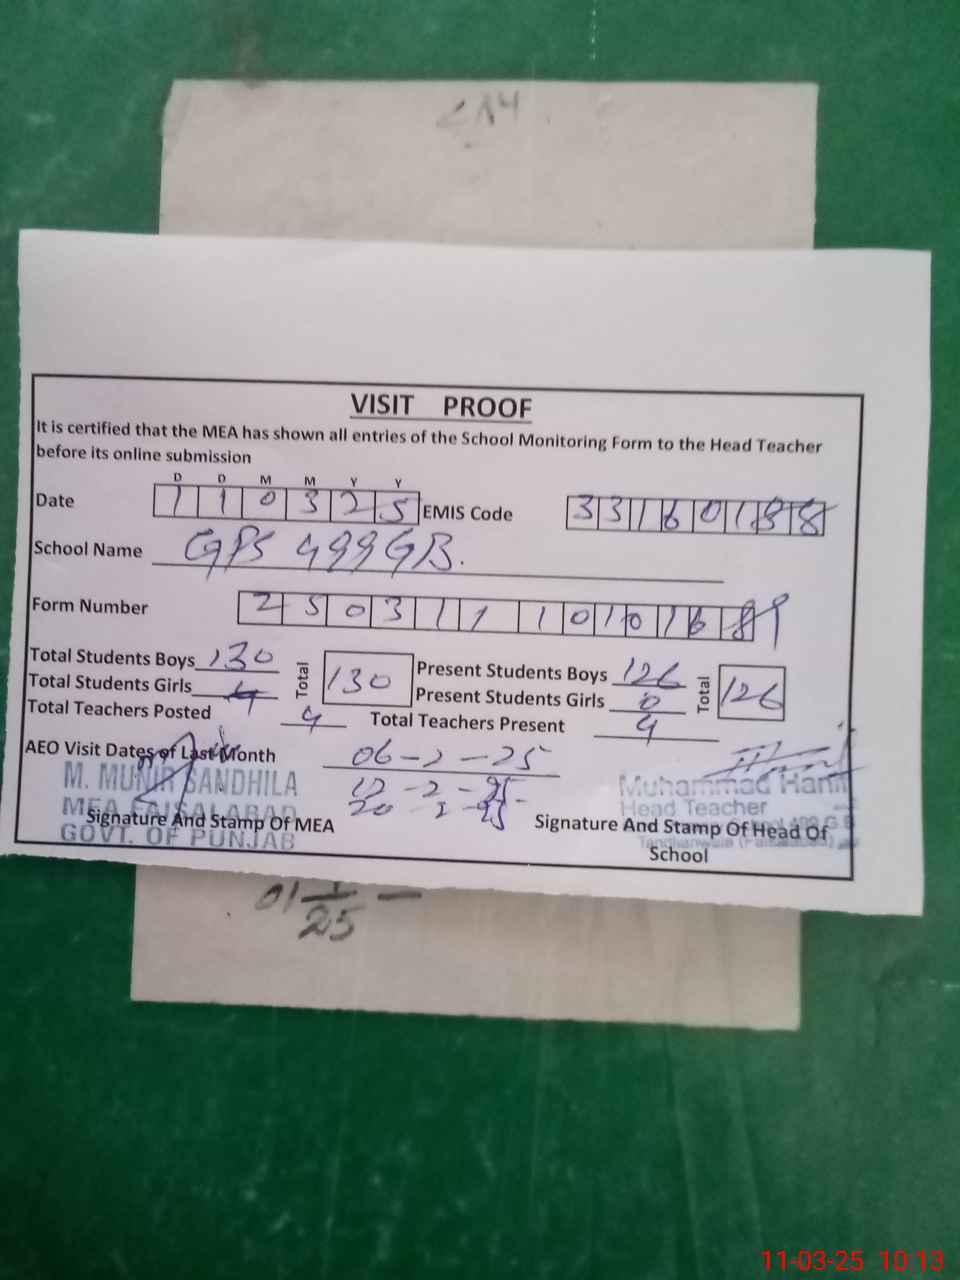 VISIT PROOF
It is certified that the MEA has shown all entries of the School Monitoring Form to the Head Teacher
before its online submission
D D M M Y Y
Date 1 1 0 3 2 5 EMIS Code 3 3 1 6 0 1 8 8
School Name GPS 499 GB.
Form Number 2 5 0 3 1 1 1 0 1 0 1 6 8 9
Total Students Boys 130 Total 130 Present Students Boys 126 Total 126
Total Students Girls Present Students Girls 0
Total Teachers Posted 4 Total Teachers Present 4
AEO Visit Dates of Last Month 06-2-25
M. MUNIR SANDHILA 12-2-25 Muhammad Hanif
MEA FAISALABAD 20 2 25 Head Teacher
Signature And Stamp Of MEA Signature And Stamp Of Head Of
GOVT. OF PUNJAB School
01 1/25
11-03-25 10:13